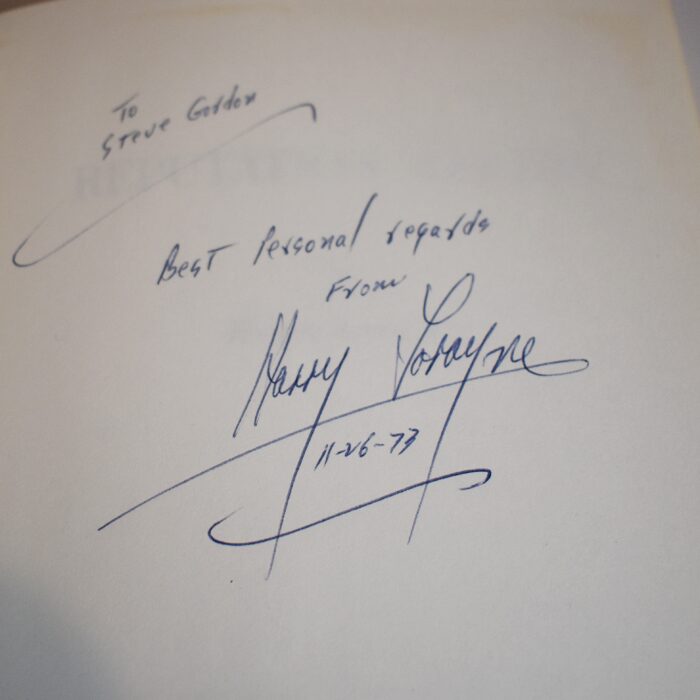 To
Steve Gordon
Best Personal regards
From
Harry Lorayne
11-26-73